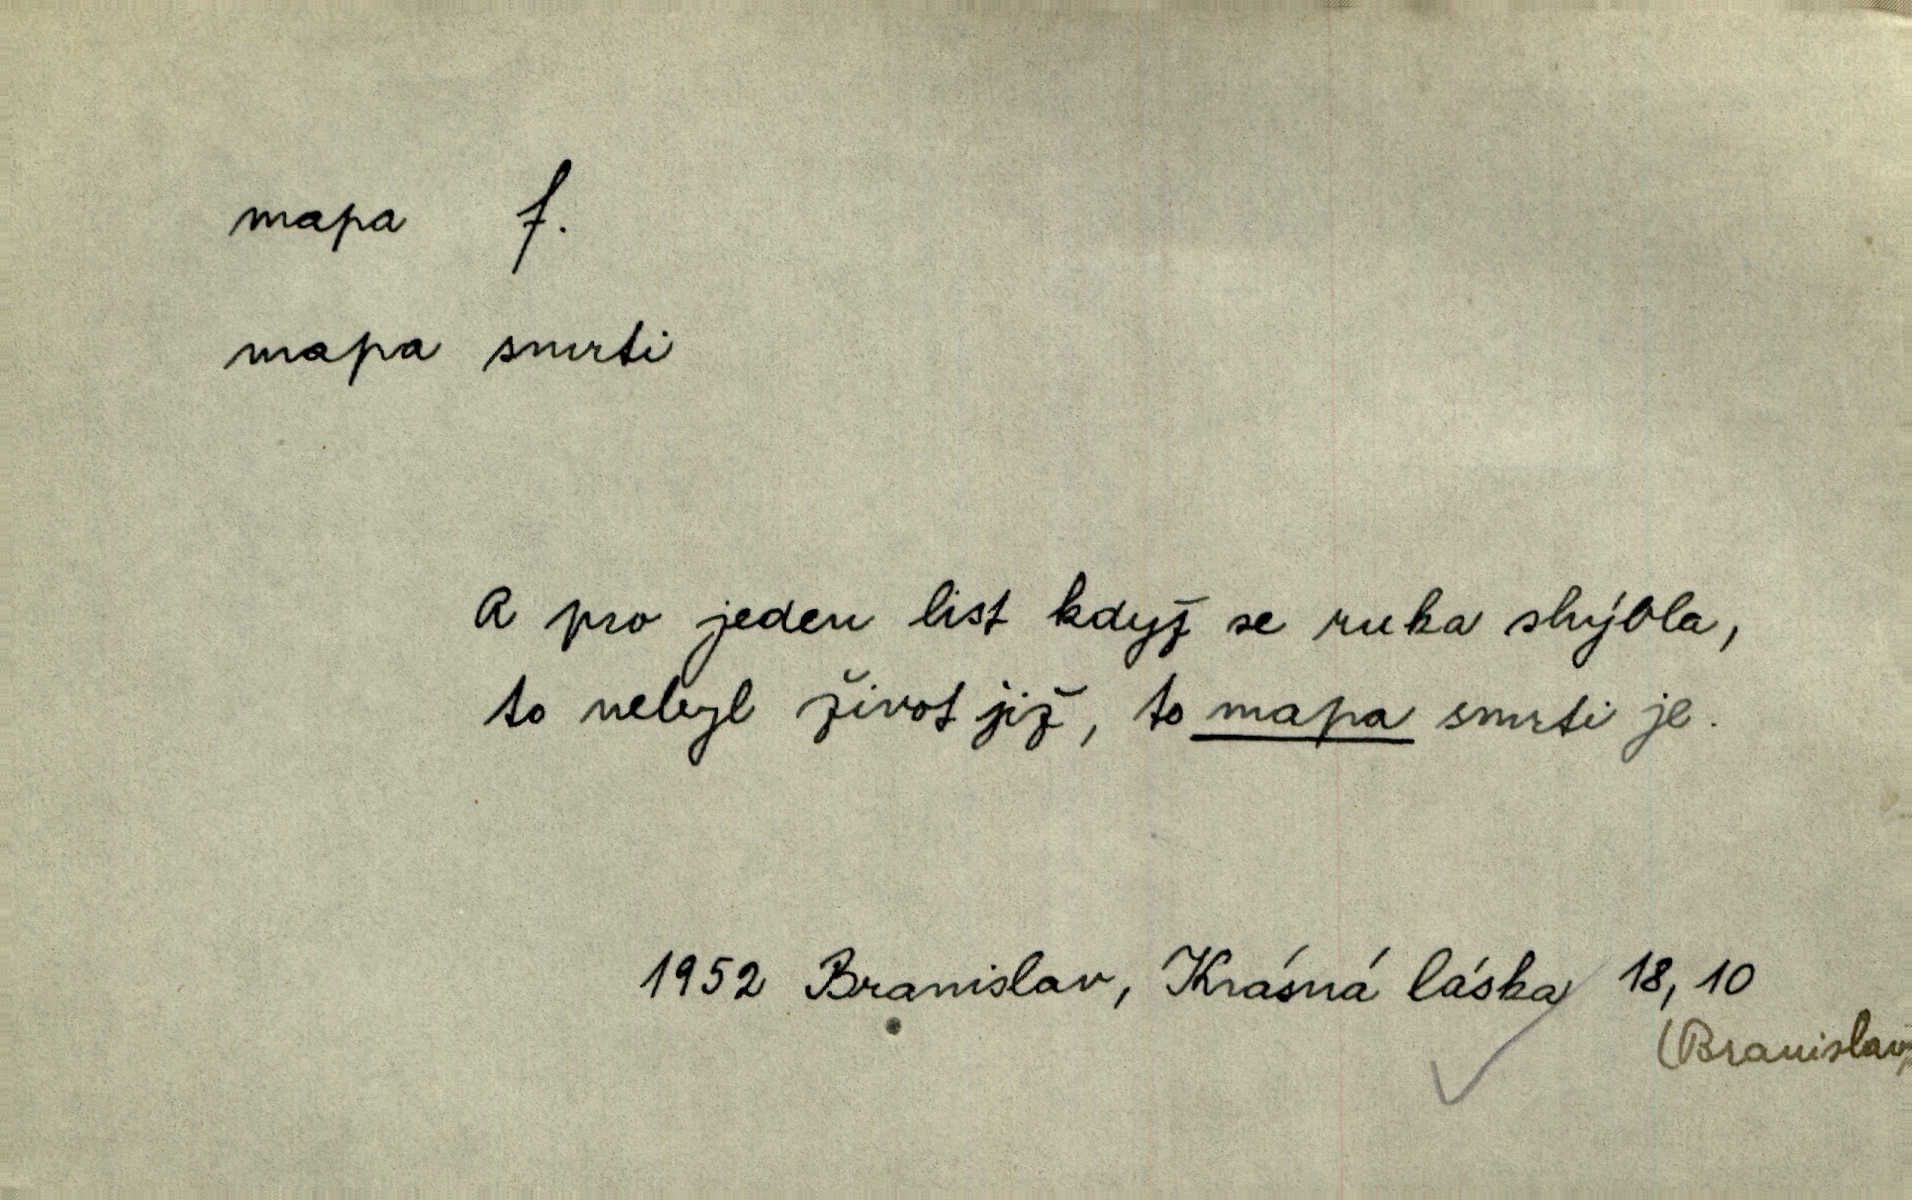 mapa f.
mapa smrti
A pro jeden list když se ruka shýbla,
to nebyl život již, to mapa smrti je.
1952 Branislav, Krásná láska 18, 10
(Branislav)